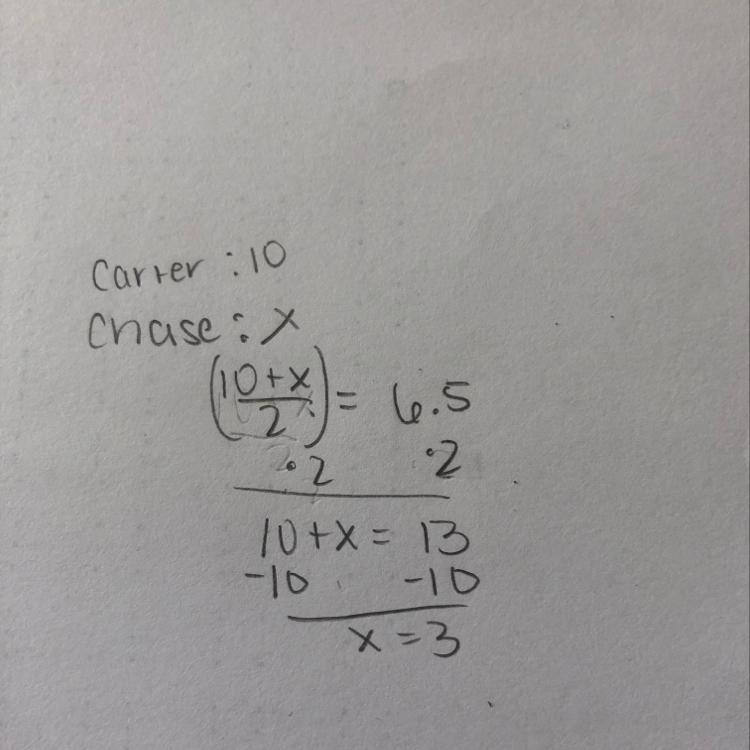 Carter : 10
Chase : x
(10+x / 2) = 6.5
·2 ·2
10+x = 13
-10 -10
x = 3